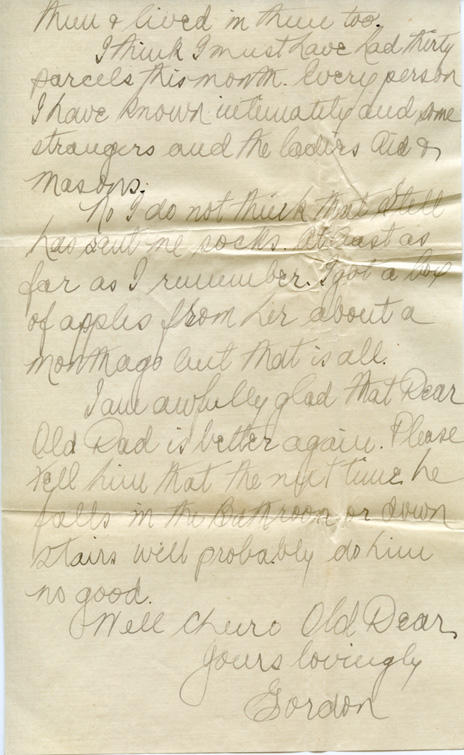 them & lived in them too.
I think I must have had thirty
parcels this month. Every person
I have known intimately and some
strangers and the ladies Aid &
Masons.
No I do not think that Stell
has sent me socks. At least as
far as I remember. I got a box
of apples from her about a
month ago but that is all.
I am awfully glad that Dear
Old Dad is better again. Please
tell him that the next time he
falls in the Bathroom or down
stairs will probably do him
no good.
Well cheiro Old Dear,
Yours lovingly
Gordon